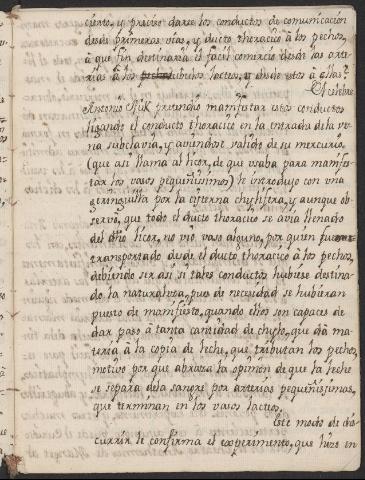 cierto, y preciso darse los conductos de comunicación
desde primeras vias, y ducto thoracico à los pechos,
à que fin destinaria el facil comercio desde las arte
rias à los tubulos lacteos, y desde estos à ellas?
El celebre
Antonio Nuk pretendio manifestar estos conductos
ligando el conducto thoracico en la entrada de la ve
na subclavia, y aviendose valido de su mercurio,
(que asi llama al licor, de que usaba para manifes
tar los vasos pequeñissimos) le introdujo con una
geringuilla por la cisterna chylifera, y aunque ob
servò, que todo el ducto thoracico se avia llenado
del dho licor, no viò vaso alguno, por quien fuese
transportado desde el ducto thoracico à los pechos,
debiendo ser asi si tales conductos hubiese destina
do la naturaleza, pues de necesidad se hubieran
puesto de manifiesto, quando ellos son capaces de
dar paso à tanta cantidad de chylo, que dà ma
teria à la copia de leche, que tributan los pechos,
motivo por que abraza la opinion de que la leche
se separa de la sangre por arterias pequeñissimas,
que terminan en los vasos lacteos.
Este modo de dis
currir le confirma el experimento, que hizo en